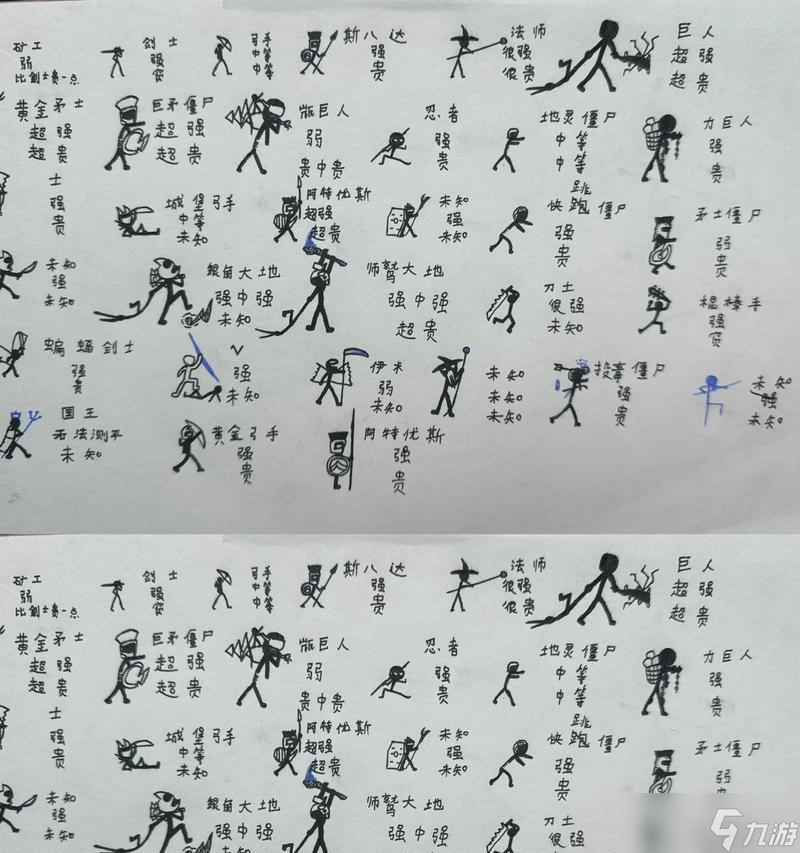 矿工
弱
比剑士贵一点
剑士
强
穷
弓手
中等
中等
斯八达
强
贵
法师
很强
很贵
巨人
超强
超贵
黄金矛士
超强
超贵
巨矛僵尸
超强
超贵
巨人
弱
贵中贵
忍者
强
贵
地灵僵尸
中等
中等
力巨人
强
贵
士
强
贵
城堡弓手
中等
未知
阿特优斯
超强
超贵
未知
强
未知
跳
快跑僵尸
强
贵
矛士僵尸
弱
贵
未知
强
未知
银角大地
强中强
未知
师鹫大地
强中强
超贵
刀士
很强
未知
棍棒手
强
穷
蝙蝠剑士
强
贵
V
强
未知
伊卡
弱
未知
未知
未知
未知
投毒僵尸
强
贵
未知
强
未知
国王
无法测平
未知
黄金弓手
强
贵
阿特优斯
强
贵
矿工
弱
比剑士贵一点
剑士
强
穷
弓手
中等
中等
斯八达
强
贵
法师
很强
很贵
巨人
超强
超贵
黄金矛士
超强
超贵
巨矛僵尸
超强
超贵
巨人
弱
贵中贵
忍者
强
贵
地灵僵尸
中等
中等
力巨人
强
贵
士
强
贵
城堡弓手
中等
未知
阿特优斯
超强
超贵
未知
强
未知
跳
快跑僵尸
强
贵
矛士僵尸
弱
未知
强
未知
银角大地
强中强
师鹫大地
强中强
刀士
很强
九游